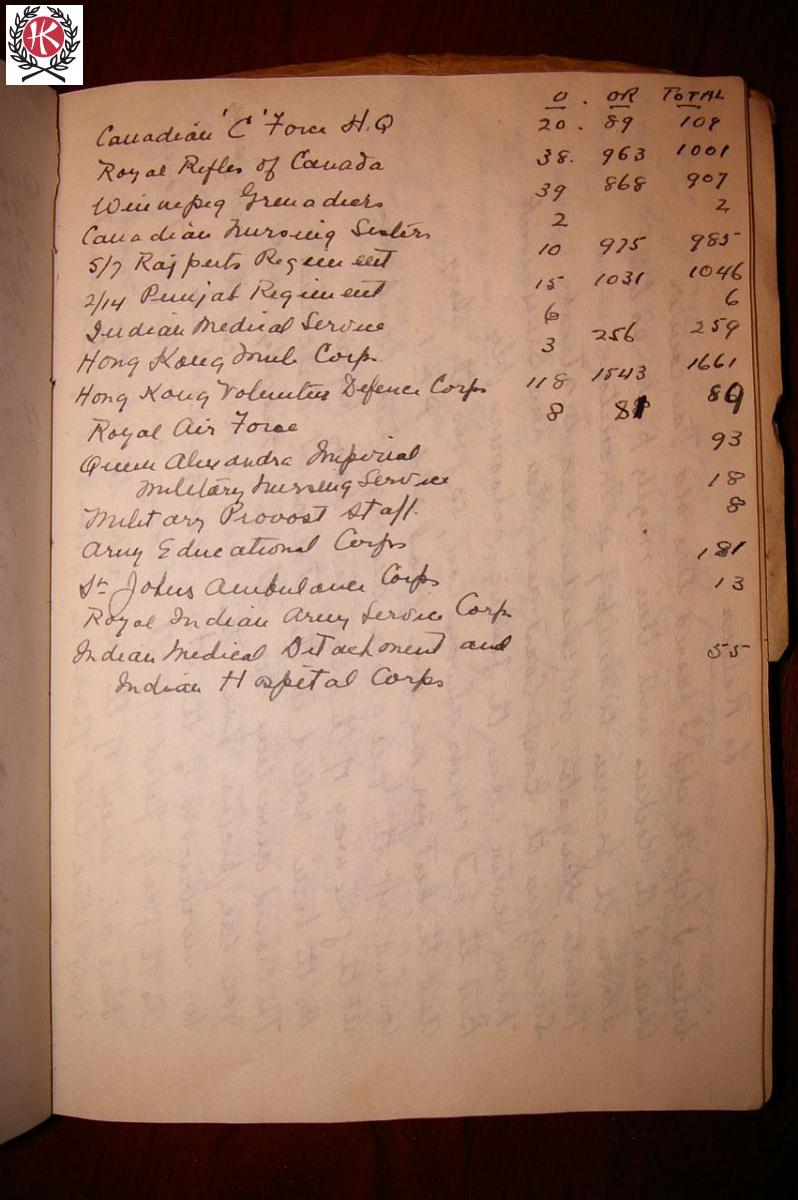 HK
O. OR TOTAL
Canadian 'C' Force H.Q 20. 89 109
Royal Rifles of Canada 38. 963 1001
Winnipeg Grenadiers 39 868 907
Canadian Nursing Sisters 2 2
5/7 Rajputs Regiment 10 975 985
2/14 Punjab Regiment 15 1031 1046
Indian Medical Service 6 6
Hong Kong Mule Corp. 3 256 259
Hong Kong Volunteer Defence Corps 118 1543 1661
Royal Air Force 8 81 89
Queen Alexandra Imperial
Military Nursing Service 93
Military Provost Staff. 18
Army Educational Corps 8
St Johns Ambulance Corps 181
Royal Indian Army Service Corp. 13
Indian Medical Detachment and
Indian Hospital Corps 55